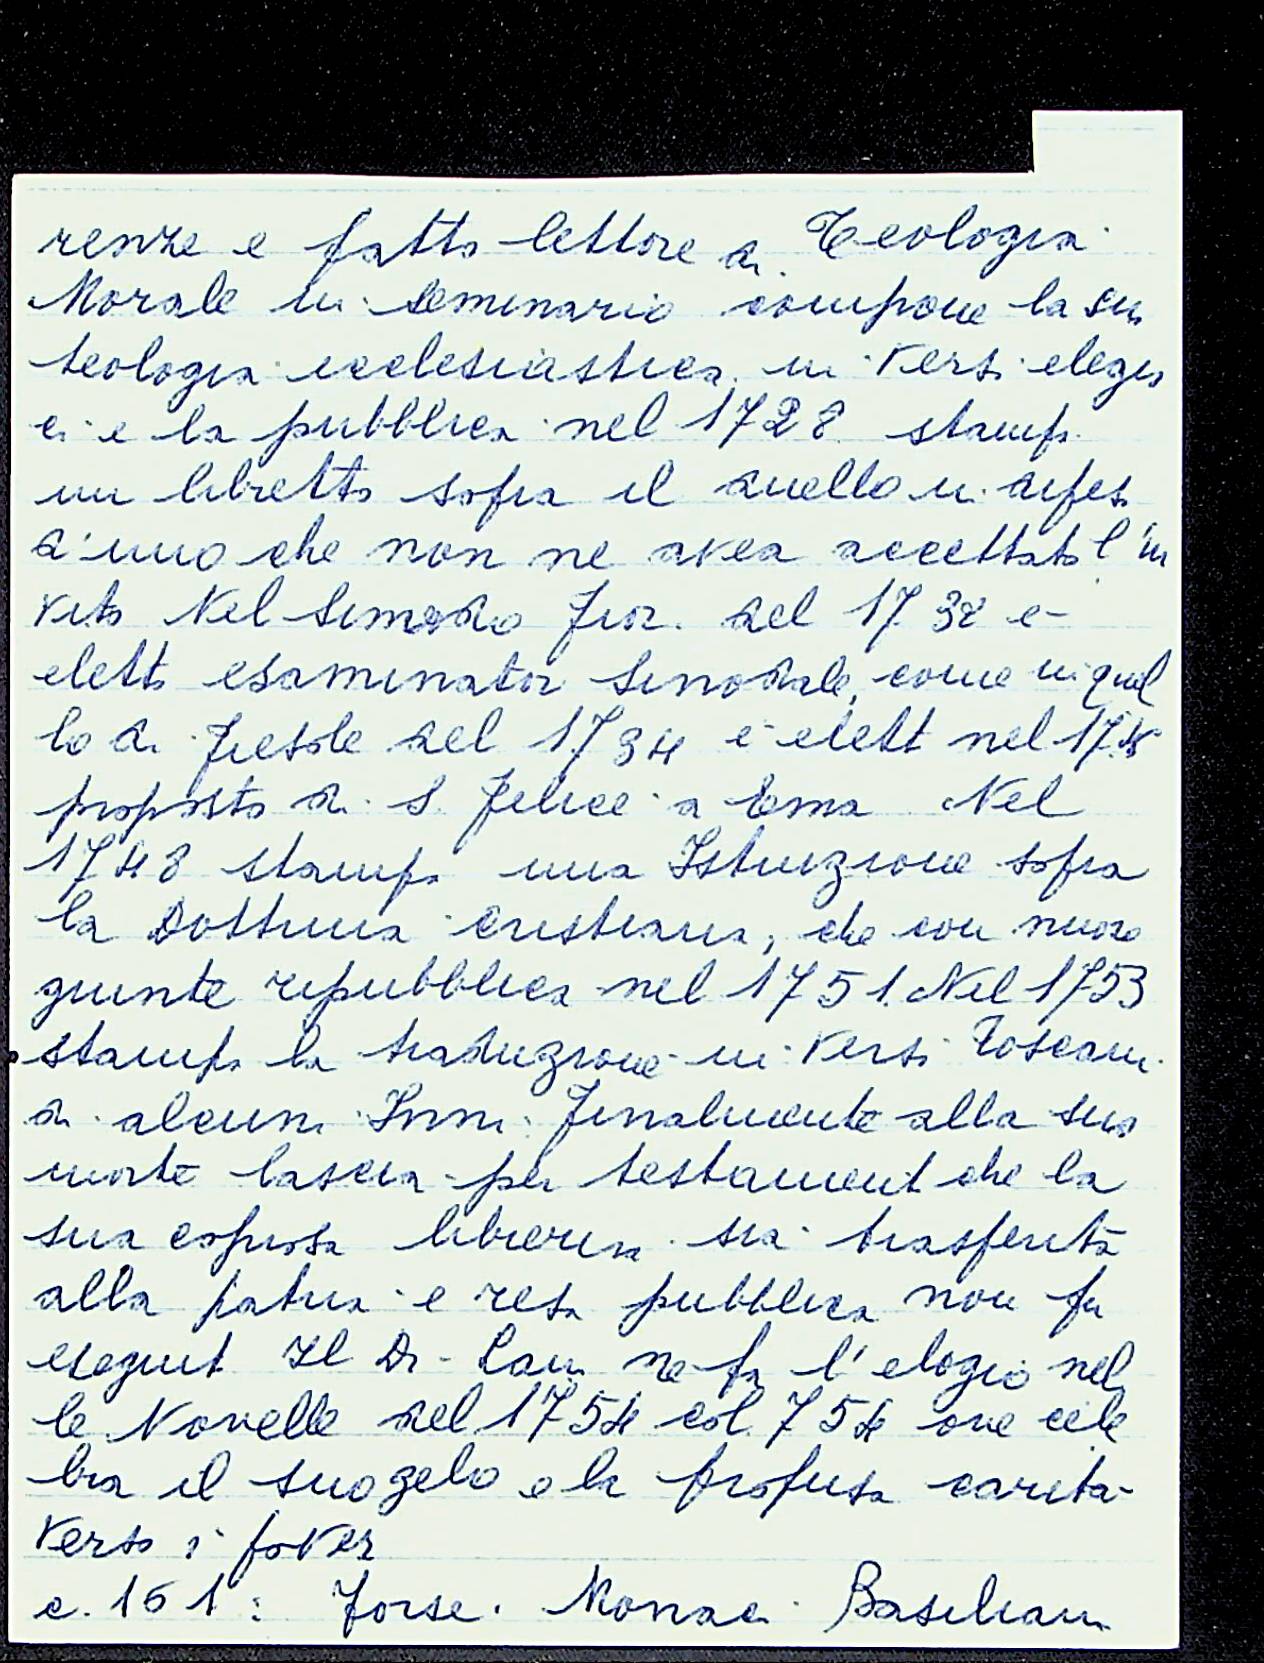 renze e fatto lettore di Teologia
Morale in Seminario compone la sua
teologia ecclesiastica in versi elegia
ci e la pubblica nel 1728 stampa
un libretto sopra il duello in difesa
d'uno che non ne avea accettato l'in
vito Nel Sinodo Fior. del 1732 e
eletto esaminator Sinodale, come in quel
lo di Fiesole del 1734 e elett nel 174
proposto di S. Felice a Ema Nel
1748 stampa una Istruzione sopra
la Dottrina Cristiana, che con nuove
giunte repubblica nel 1751. Nel 1753
stampa la traduzione in versi Toscani
di alcuni Inni. Finalmente alla sua
morte lascia per testament che la
sua copiosa libreria sia trasferita
alla patria e resa pubblica non fu
eseguit Il Dr. Lami ne fa l'elogio nel
le Novelle del 1754 col. 754 ove cele
bra il suo zelo e la profusa carita
verso i poveri
c. 161: Forse. Monaci Basiliani